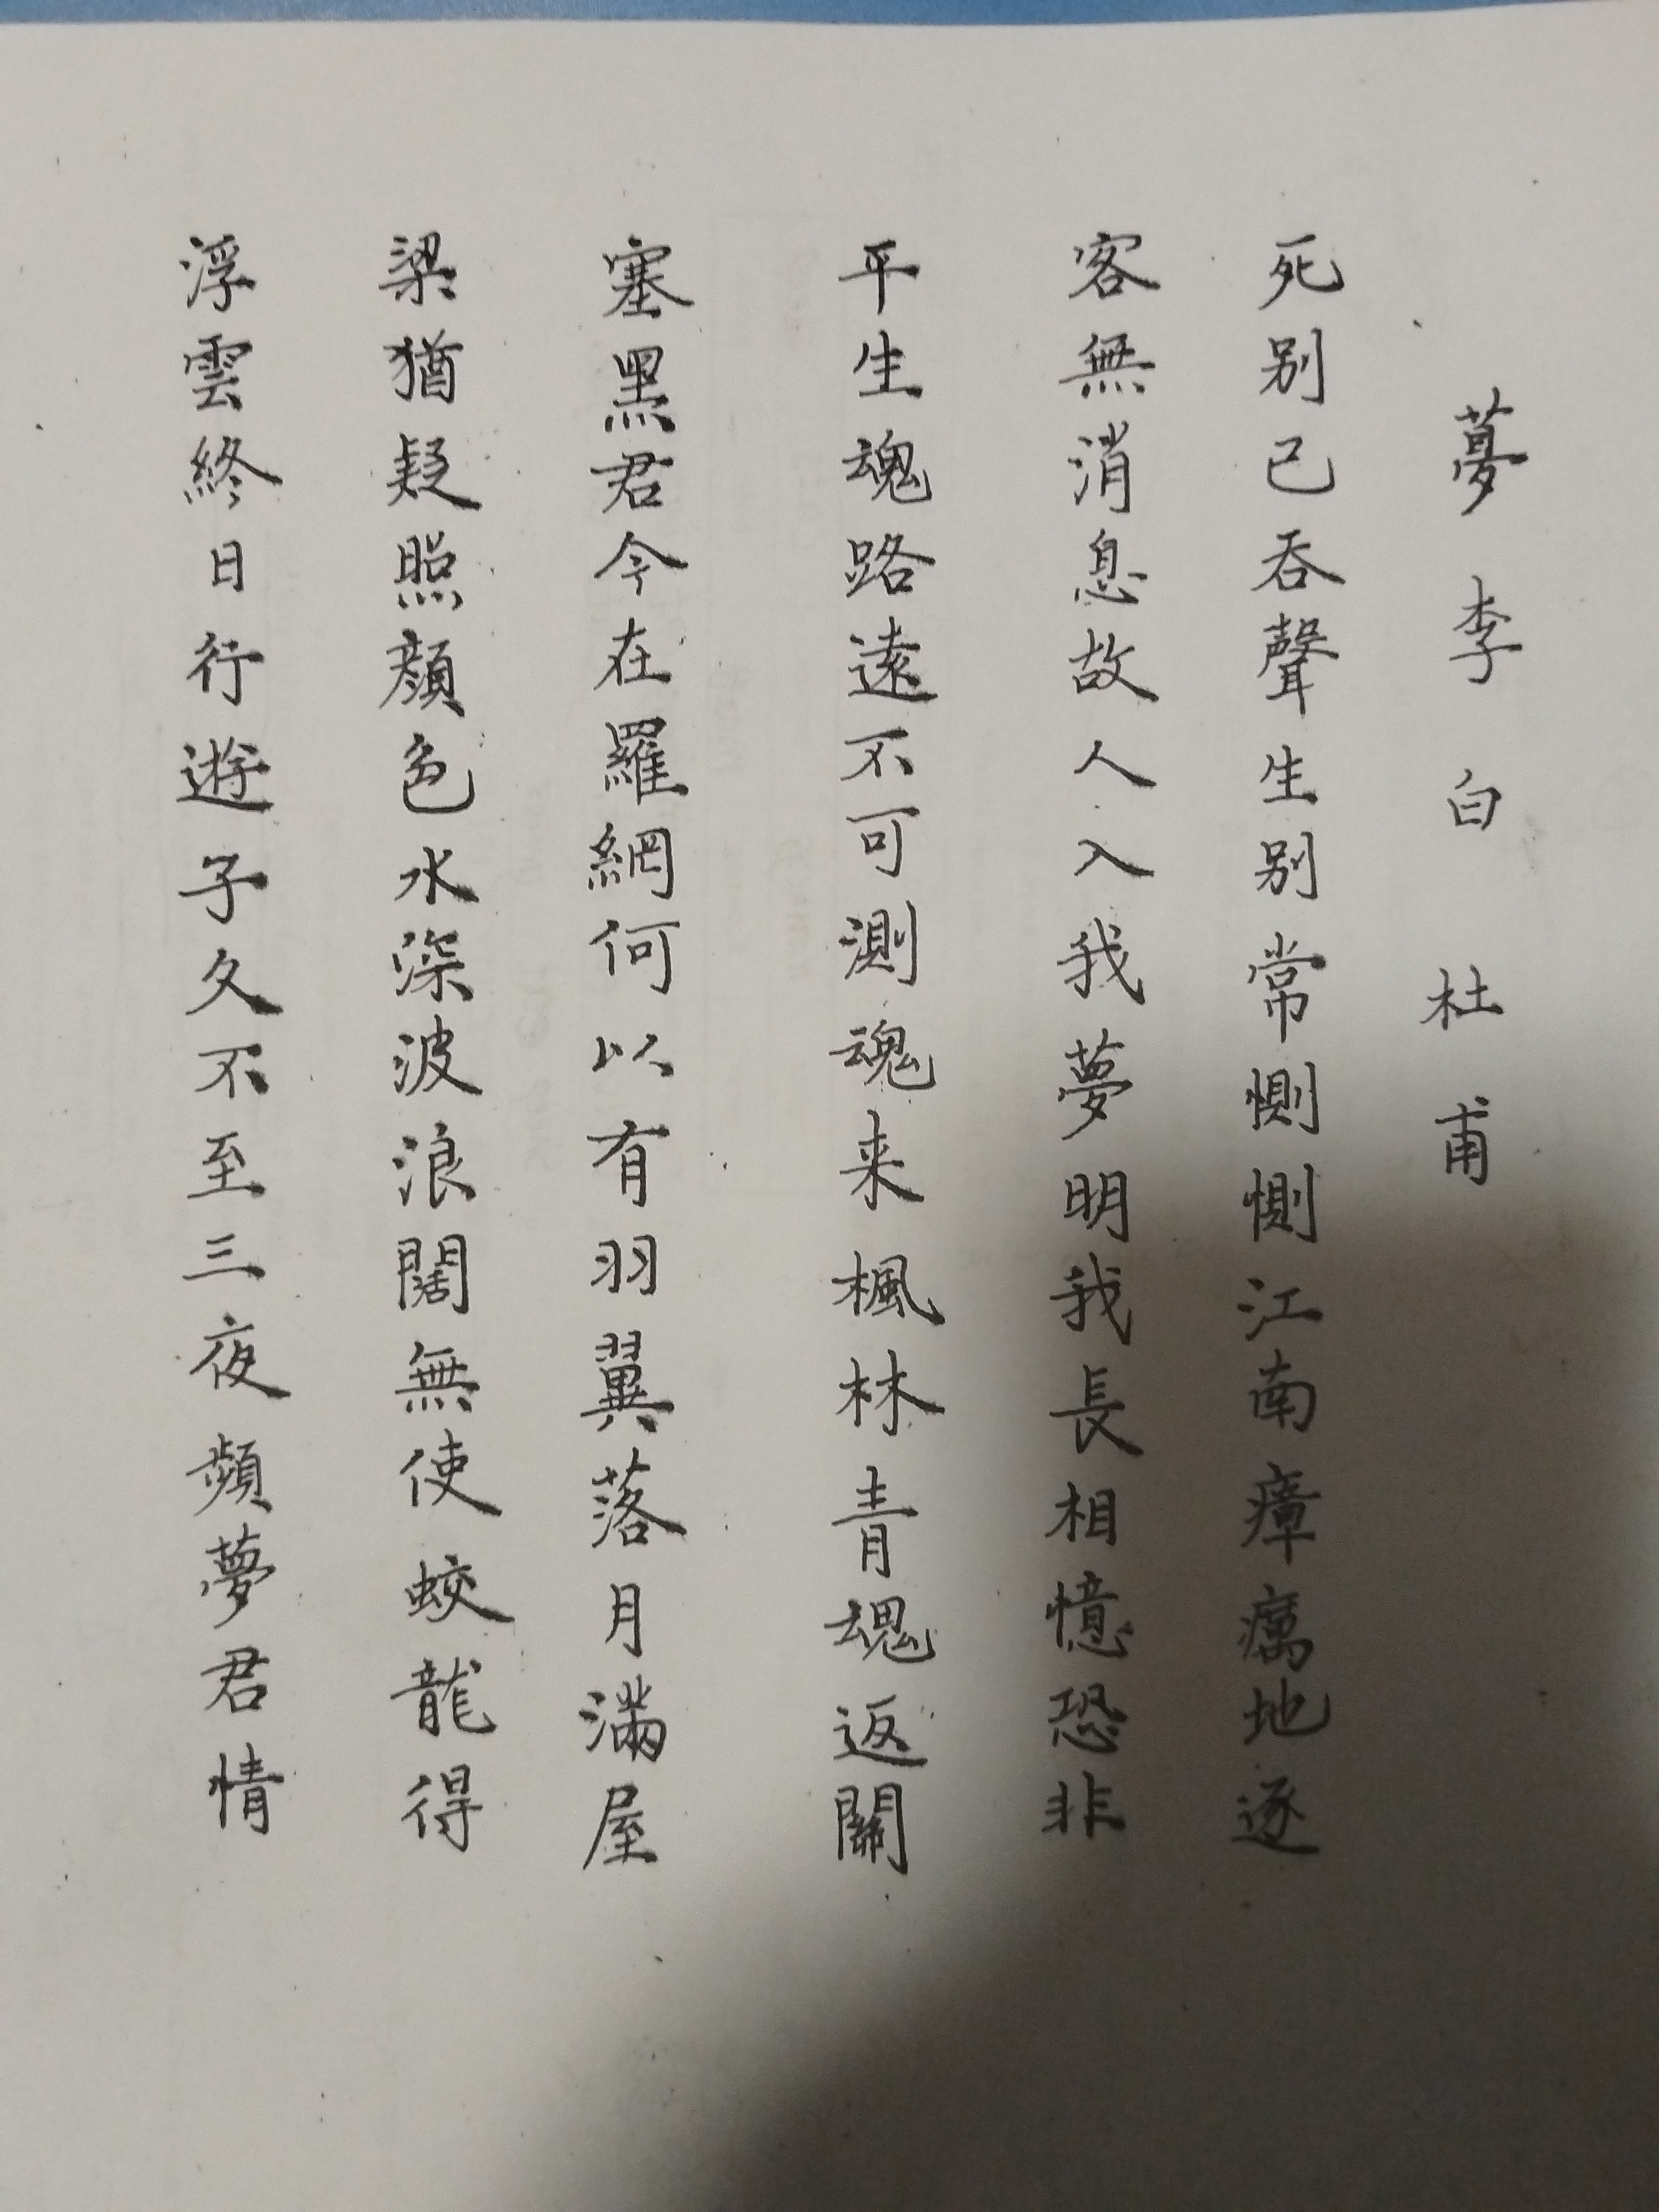 夢李白 杜甫
死别已吞聲生别常惻惻江南瘴癘地逐
客無消息故人入我夢明我長相憶恐非
平生魂路遠不可測魂来楓林青魂返關
塞黑君今在羅網何以有羽翼落月滿屋
梁猶疑照顔色水深波浪闊無使蛟龍得
浮雲終日行遊子久不至三夜頻夢君情